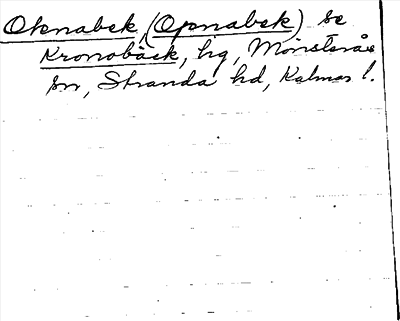 Oknabek (Opnabek) se
Kronobäck, hg, Mönsterås
sn, Stranda hd, Kalmar l.